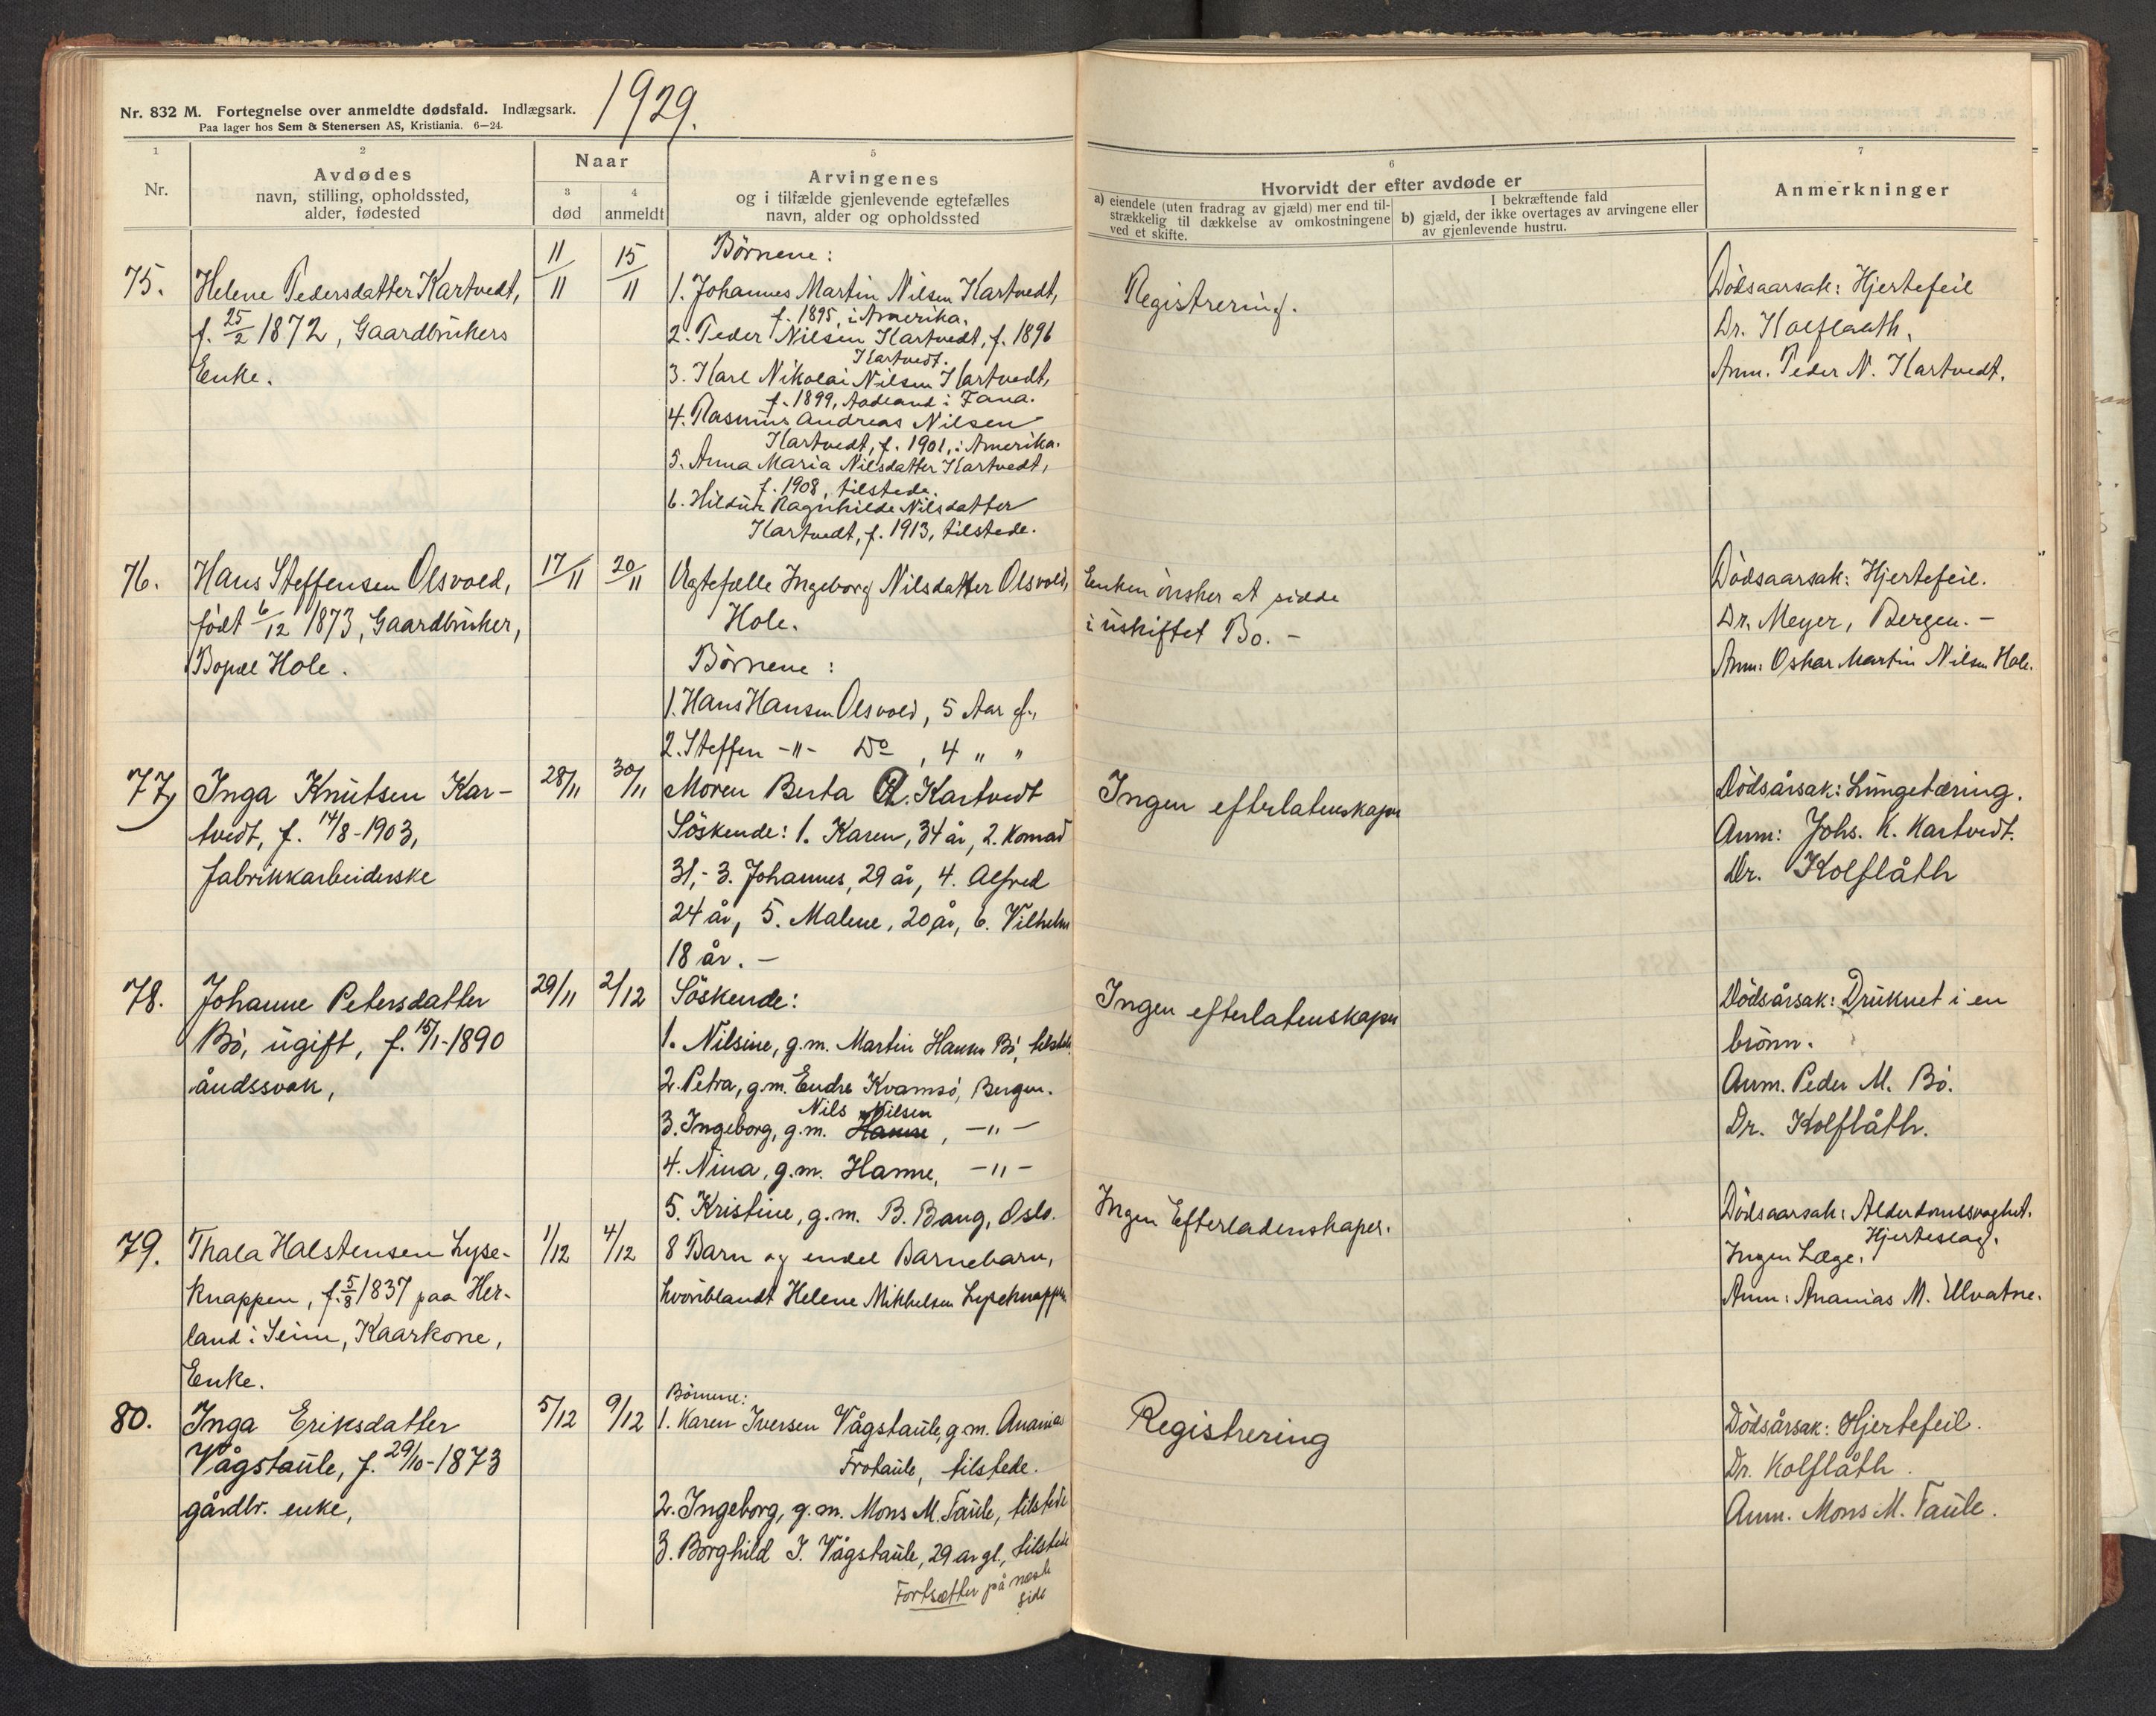 Nr. 832 M. Fortegnelse over anmeldte dødsfald. Indlægsark.
Paa lager hos Sem & Stenersen AS, Kristiania. 6—24.
1929.
1
Nr.
2
Avdødes
navn, stilling, opholdssted,
alder, fødested
Naar
3
død
4
anmeldt
5
Arvingenes
og i tilfælde gjenlevende egtefælles
navn, alder og opholdssted
6
Hvorvidt der efter avdøde er
a) eiendele (uten fradrag av gjæld) mer end til-
strækkelig til dækkelse av omkostningene
ved et skifte.
I bekræftende fald
b) gjæld, der ikke overtages av arvingene eller
av gjenlevende hustru.
7
Anmerkninger
75.
Helene Pedersdatter Kartvedt,
f. 25/2 1872, Gaardbrukers
Enke.
11/11
15/11
Børnene:
1. Johannes Martin Nilsen Kartvedt,
f. 1895, i Amerika.
2. Peder Nilsen Kartvedt, f. 1896
Kartvedt.
3. Karl Nikolai Nilsen Kartvedt,
f. 1899, Aadland i Fana.
4. Rasmus Andreas Nilsen
Kartvedt, f. 1901, i Amerika.
5. Anna Maria Nilsdatter Kartvedt,
f. 1908, tilstede.
6. Hildur Ragnhilde Nilsdatter
Kartvedt, f. 1913, tilstede.
Registrering.
Dödsaarsak: Hjertefeil
Dr. Kolflaath.
Anm. Peder N. Kartvedt.
76.
Hans Steffensen Olsvold,
født 6/12 1873, Gaardbruker,
Bopæl Hole.
17/11
20/11
Ægtefælle Ingeborg Nilsdatter Olsvold,
Hole.
Börnene:
1. Hans Hansen Olsvold, 5 Aar gl.,
2. Steffen -"- Do, 4 " "
Enken önsker at sidde
i uskiftet Bo. -
Dødsaarsak: Hjertefeil.
Dr. Meyer, Bergen. -
Anm: Oskar Martin Nilsen Hole.
77,
Inga Knutsen Kar-
tvedt, f. 14/8-1903,
fabrikkarbeiderske
28/11
30/11
Moren Berta K. Kartvedt
Söskende: 1. Karen, 34 år, 2. Konrad
31,- 3. Johannes, 29 år, 4. Alfred
24 år, 5. Malene, 20 år, 6. Vilhelm
18 år. -
Ingen efterlatenskaper
Dödsårsak: Lungetæring.
Anm: Johs. K. Kartvedt.
Dr. Kolflåth
78.
Johanne Petersdatter
Bö, ugift, f. 15/1-1890
åndssvak,
29/11
2/12
Söskende:
1. Nilsine, g.m. Martin Hansen Bö, tilstede.
2. Petra, g.m. Endre Kvamsö, Bergen.
Nils Nilsen
3. Ingeborg, g.m. Hanne, -"-
4. Nina, g.m. Hanne, -"-
5. Kristine, g.m. B. Bang, Oslo.
Ingen efterlatenskaper
Dödsårsak: Druknet i en
brönn.
Anm. Peder M. Bö.
Dr. Kolflåth.
79.
Thala Halstensen Lyse-
knappen, f. 5/8 1837 paa Her-
land i Seim, Kaarkone,
Enke.
1/12
4/12
8 Barn og endel Barnebarn,
hvoriblandt Helene Mikkelsen Lyseknappen
Ingen Efterladenskaper.
Dödsaarsak: Alderdomssvaghet.
Hjerteslag.
Ingen Læge.
Anm: Ananias M. Ulvatne.
80.
Inga Eriksdatter
Vågstaule, f. 29/10-1873
gårdbr. enke,
5/12
9/12
Börnene:
1. Karen Iversen Vågstaule, g.m. Ananias
Frotaule, tilstede.
2. Ingeborg, g.m. Mons M. Taule, tilstede
3. Borghild I. Vågstaule, 29 år gl., tilstede
Fortsætter på næste
side
Registrering
Dödsårsak: Hjertefeil.
Dr. Kolflåth.
Anm. Mons M. Taule.